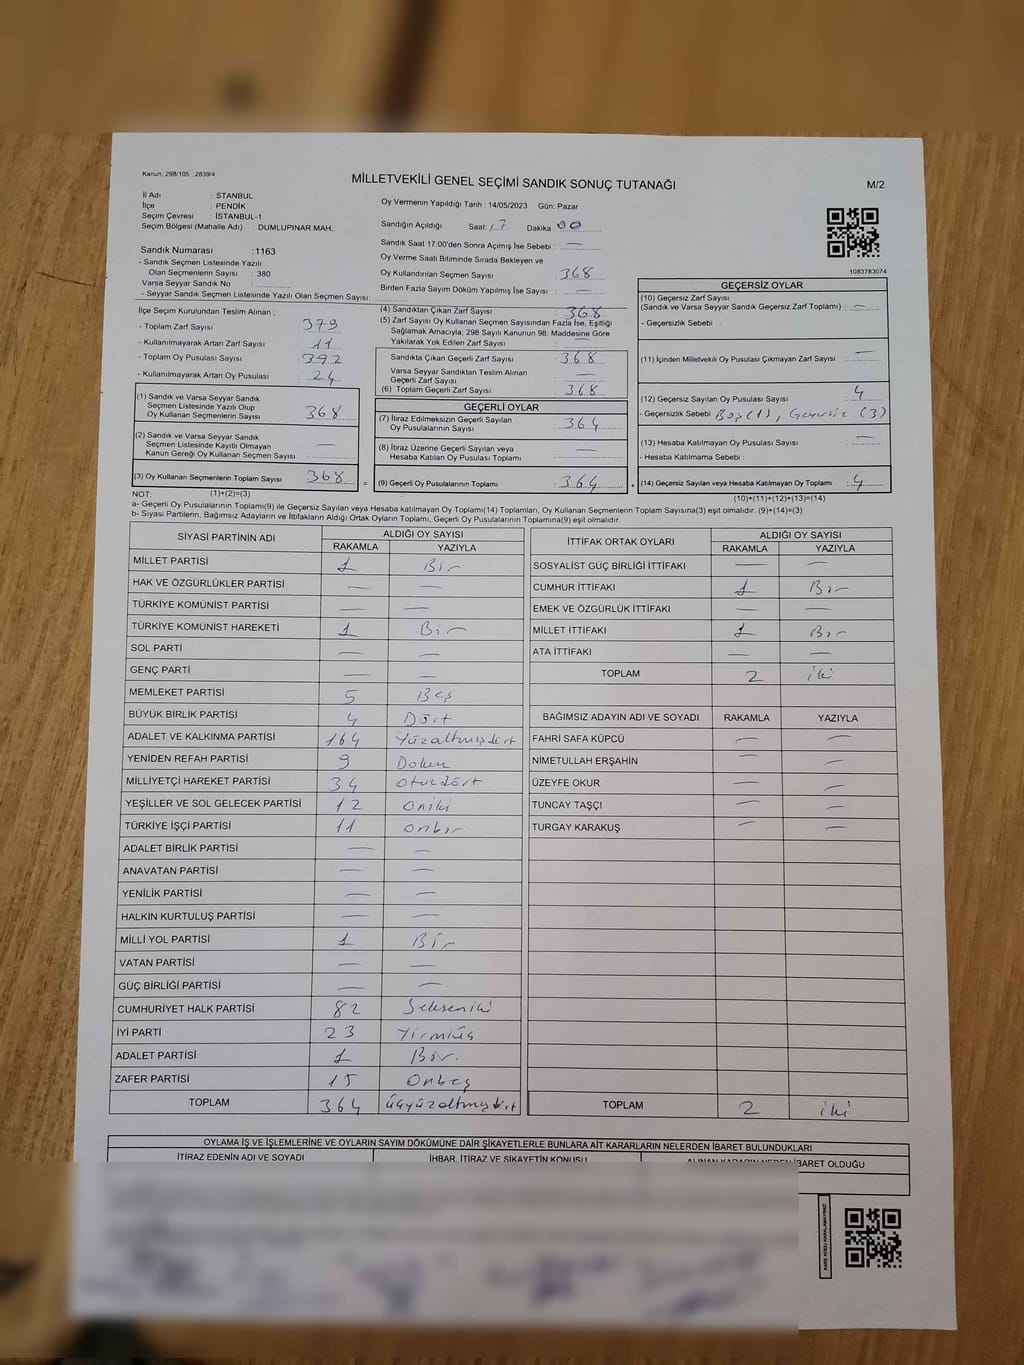 Kanun, 298/105 , 2839/4
MİLLETVEKİLİ GENEL SEÇİMİ SANDIK SONUÇ TUTANAĞI
M/2
İl Adı : STANBUL
İlçe : PENDİK
Seçim Çevresi : İSTANBUL-1
Seçim Bölgesi (Mahalle Adı) : DUMLUPINAR MAH.
Sandık Numarası :1163
- Sandık Seçmen Listesinde Yazılı
Olan Seçmenlerin Sayısı : 380
Varsa Seyyar Sandık No :
- Seyyar Sandık Seçmen Listesinde Yazılı Olan Seçmen Sayısı:
İlçe Seçim Kurulundan Teslim Alınan ;
- Toplam Zarf Sayısı : 379
- Kullanılmayarak Artan Zarf Sayısı : 11
- Toplam Oy Pusulası Sayısı : 392
- Kullanılmayarak Artan Oy Pusulası : 24
(1) Sandık ve Varsa Seyyar Sandık
Seçmen Listesinde Yazılı Olup
Oy Kullanan Seçmenlerin Sayısı : 368
(2) Sandık ve Varsa Seyyar Sandık
Seçmen Listesinde Kayıtlı Olmayan
Kanun Gereği Oy Kullanan Seçmen Sayısı : —
(3) Oy Kullanan Seçmenlerin Toplam Sayısı : 368
(1)+(2)=(3)
Oy Vermenin Yapıldığı Tarih : 14/05/2023 Gün: Pazar
Sandığın Açıldığı Saat: 17 Dakika : 00
Sandık Saat 17:00'den Sonra Açımış İse Sebebi : —
Oy Verme Saati Bitiminde Sırada Bekleyen ve
Oy Kullandırılan Seçmen Sayısı : 368
Birden Fazla Sayım Döküm Yapılmış İse Sayısı : —
(4) Sandıktan Çıkan Zarf Sayısı : 368
(5) Zarf Sayısı Oy Kullanan Seçmen Sayısından Fazla İse, Eşitliği
Sağlamak Amacıyla; 298 Sayılı Kanunun 98. Maddesine Göre
Yakılarak Yok Edilen Zarf Sayısı : —
Sandıkta Çıkan Geçerli Zarf Sayısı : 368
Varsa Seyyar Sandıktan Teslim Alınan
Geçerli Zarf Sayısı : —
(6) Toplam Geçerli Zarf Sayısı : 368
GEÇERLİ OYLAR
(7) İtiraz Edilmeksizin Geçerli Sayılan
Oy Pusulalarının Sayısı : 364
(8) İtiraz Üzerine Geçerli Sayılan veya
Hesaba Katılan Oy Pusulası Toplamı : —
= (9) Geçerli Oy Pusulalarının Toplamı : 364
1083783074
GEÇERSİZ OYLAR
(10) Geçersiz Zarf Sayısı
(Sandık ve Varsa Seyyar Sandık Geçersiz Zarf Toplamı) : —
- Geçersizlik Sebebi :
(11) İçinden Milletvekili Oy Pusulası Çıkmayan Zarf Sayısı : —
(12) Geçersiz Sayılan Oy Pusulası Sayısı : 4
- Geçersizlik Sebebi : Boş (1), Geçersiz (3)
(13) Hesaba Katılmayan Oy Pusulası Sayısı : —
- Hesaba Katılmama Sebebi :
+ (14) Geçersiz Sayılan veya Hesaba Katılmayan Oy Toplamı : 4
(10)+(11)+(12)+(13)=(14)
NOT:
a- Geçerli Oy Pusulalarının Toplamı(9) ile Geçersiz Sayılan veya Hesaba katılmayan Oy Toplamı(14) Toplamları, Oy Kullanan Seçmenlerin Toplam Sayısına(3) eşit olmalıdır. (9)+(14)=(3)
b- Siyasi Partilerin, Bağımsız Adayların ve İttifakların Aldığı Ortak Oyların Toplamı, Geçerli Oy Pusulalarının Toplamına(9) eşit olmalıdır.
SİYASİ PARTİNİN ADI ALDIĞI OY SAYISI
RAKAMLA YAZIYLA
MİLLET PARTİSİ 1 Bir
HAK VE ÖZGÜRLÜKLER PARTİSİ — —
TÜRKİYE KOMÜNİST PARTİSİ — —
TÜRKİYE KOMÜNİST HAREKETİ 1 Bir
SOL PARTİ — —
GENÇ PARTİ — —
MEMLEKET PARTİSİ 5 Beş
BÜYÜK BİRLİK PARTİSİ 4 Dört
ADALET VE KALKINMA PARTİSİ 164 Yüzaltmışdört
YENİDEN REFAH PARTİSİ 9 Dokuz
MİLLİYETÇİ HAREKET PARTİSİ 34 Otuzdört
YEŞİLLER VE SOL GELECEK PARTİSİ 12 Oniki
TÜRKİYE İŞÇİ PARTİSİ 11 Onbir
ADALET BİRLİK PARTİSİ — —
ANAVATAN PARTİSİ — —
YENİLİK PARTİSİ — —
HALKIN KURTULUŞ PARTİSİ — —
MİLLİ YOL PARTİSİ 1 Bir
VATAN PARTİSİ — —
GÜÇ BİRLİĞİ PARTİSİ — —
CUMHURİYET HALK PARTİSİ 82 Sekseniki
İYİ PARTİ 23 Yirmiüç
ADALET PARTİSİ 1 Bir.
ZAFER PARTİSİ 15 Onbeş
TOPLAM 364 Üçyüzaltmışdört
İTTİFAK ORTAK OYLARI ALDIĞI OY SAYISI
RAKAMLA YAZIYLA
SOSYALİST GÜÇ BİRLİĞİ İTTİFAKI — —
CUMHUR İTTİFAKI 1 Bir
EMEK VE ÖZGÜRLÜK İTTİFAKI — —
MİLLET İTTİFAKI 1 Bir
ATA İTTİFAKI — —
TOPLAM 2 iki
BAĞIMSIZ ADAYIN ADI VE SOYADI RAKAMLA YAZIYLA
FAHRİ SAFA KÜPCÜ — —
NİMETULLAH ERŞAHİN — —
ÜZEYFE OKUR — —
TUNCAY TAŞÇI — —
TURGAY KARAKUŞ — —
TOPLAM 2 iki
OYLAMA İŞ VE İŞLEMLERİNE VE OYLARIN SAYIM DÖKÜMÜNE DAİR ŞİKAYETLERLE BUNLARA AİT KARARLARIN NELERDEN İBARET BULUNDUKLARI
İTİRAZ EDENİN ADI VE SOYADI İHBAR, İTİRAZ VE ŞİKAYETİN KONUSU ALINAN KARARIN NEDEN İBARET OLDUĞU